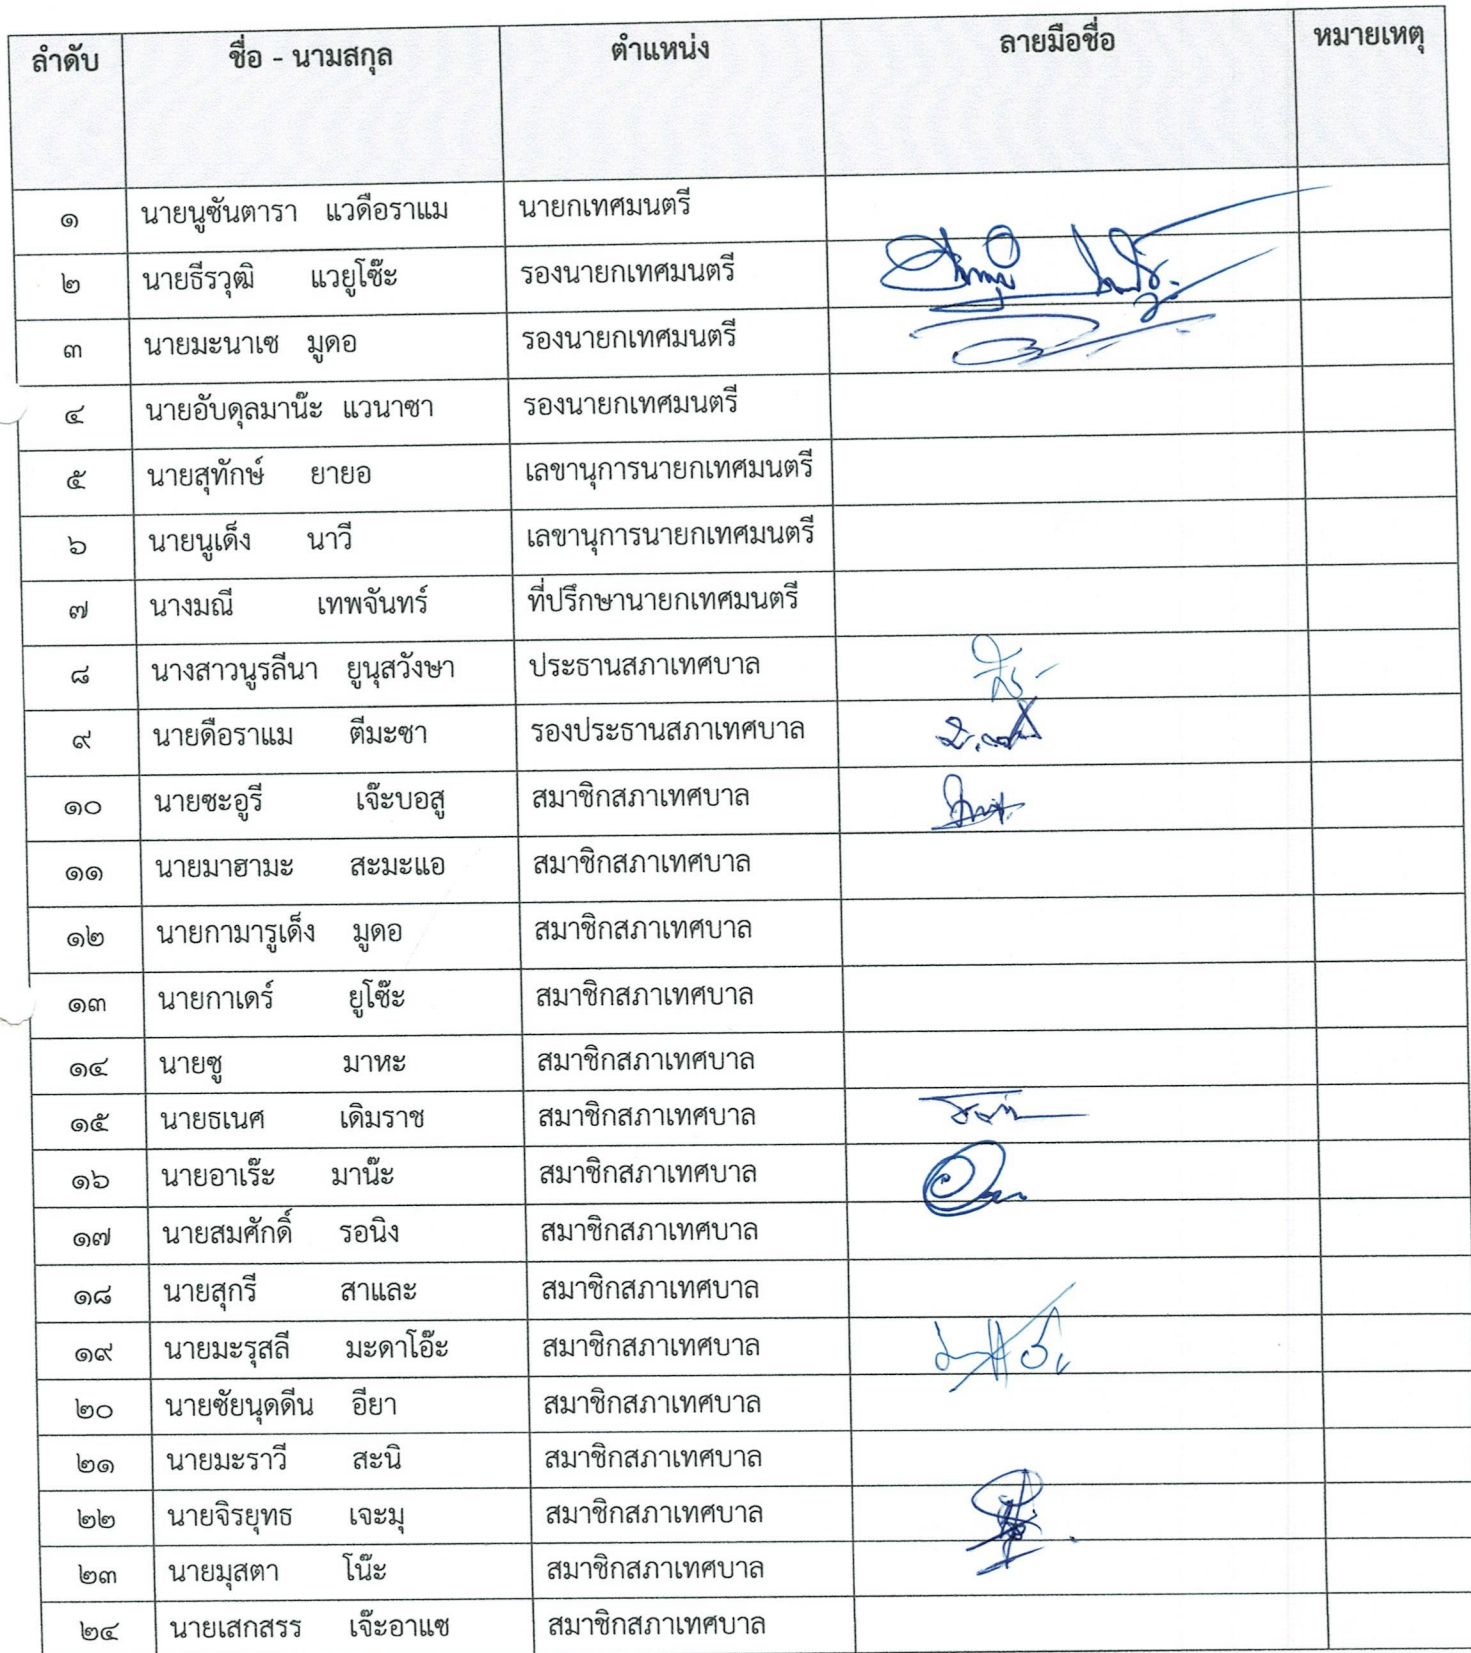 ลำดับ ชื่อ - นามสกุล ตำแหน่ง ลายมือชื่อ หมายเหตุ
๑ นายนูซันตารา แวดือราแม นายกเทศมนตรี
๒ นายธีรวุฒิ แวยูโซ๊ะ รองนายกเทศมนตรี
๓ นายมะนาเซ มูดอ รองนายกเทศมนตรี
๔ นายอับดุลมาน๊ะ แวนาซา รองนายกเทศมนตรี
๕ นายสุทักษ์ ยายอ เลขานุการนายกเทศมนตรี
๖ นายนูเด็ง นาวี เลขานุการนายกเทศมนตรี
๗ นางมณี เทพจันทร์ ที่ปรึกษานายกเทศมนตรี
๘ นางสาวนูรลีนา ยูนุสวังษา ประธานสภาเทศบาล
๙ นายดือราแม ตีมะซา รองประธานสภาเทศบาล
๑๐ นายซะอูรี เจ๊ะบอสู สมาชิกสภาเทศบาล
๑๑ นายมาฮามะ สะมะแอ สมาชิกสภาเทศบาล
๑๒ นายกามารูเด็ง มูดอ สมาชิกสภาเทศบาล
๑๓ นายกาเดร์ ยูโซ๊ะ สมาชิกสภาเทศบาล
๑๔ นายซู มาหะ สมาชิกสภาเทศบาล
๑๕ นายธเนศ เดิมราช สมาชิกสภาเทศบาล
๑๖ นายอาเร๊ะ มาน๊ะ สมาชิกสภาเทศบาล
๑๗ นายสมศักดิ์ รอนิง สมาชิกสภาเทศบาล
๑๘ นายสุกรี สาและ สมาชิกสภาเทศบาล
๑๙ นายมะรุสลี มะดาโอ๊ะ สมาชิกสภาเทศบาล
๒๐ นายซัยนุดดีน อียา สมาชิกสภาเทศบาล
๒๑ นายมะราวี สะนิ สมาชิกสภาเทศบาล
๒๒ นายจิรยุทธ เจะมุ สมาชิกสภาเทศบาล
๒๓ นายมุสตา โน๊ะ สมาชิกสภาเทศบาล
๒๔ นายเสกสรร เจ๊ะอาแซ สมาชิกสภาเทศบาล